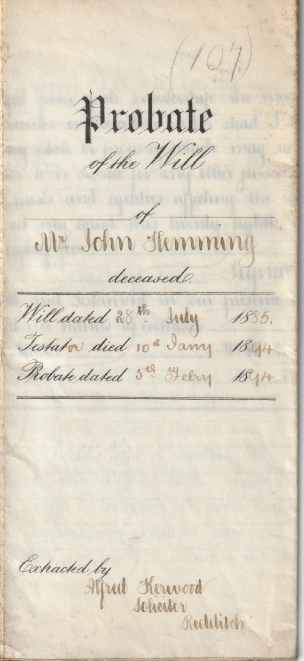 (107)
Probate
of the Will
of
Mr John Hemming
deceased.
Will dated 28th July 1885.
Testator died 10th Jany 1894
Probate dated 5th Febry 1894
Extracted by
Alfred Kerwood
Solicitor
Redditch